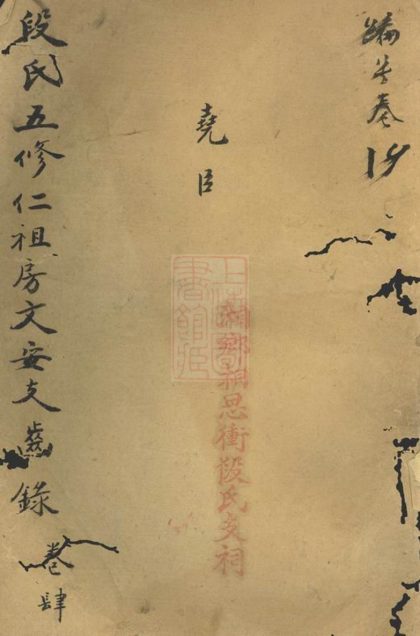 卷
堯臣
湘鄉相思衝段氏支祠
上海圖書館藏
段氏五修仁祖房文安支齒錄 卷肆